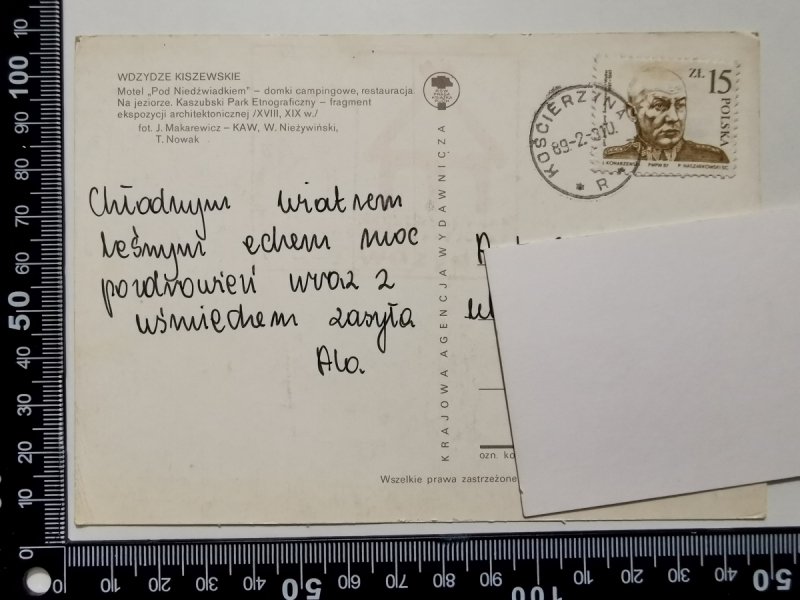 WDZYDZE KISZEWSKIE
Motel „Pod Niedźwiadkiem" – domki campingowe, restauracja
Na jeziorze. Kaszubski Park Etnograficzny – fragment
ekspozycji architektonicznej /XVIII, XIX w./
fot. J. Makarewicz – KAW, W. Nieżywiński,
T. Nowak
KRAJOWA AGENCJA WYDAWNICZA
ZŁ 15
POLSKA
J. KONARZEWSKI PWPW 87 P. NASZARKOWSKI SC.
KOŚCIERZYNA
R
Chłodnym wiatrem
leśnym echem moc
pozdrowień wraz z
uśmiechem zasyła
Ala.
ozn. ko
Wszelkie prawa zastrzeżone
100 90 80 70 60 50 40 30 20 10 0
0 10 20 30 40 50 60 70 80 90 100 10 20 30 40 50